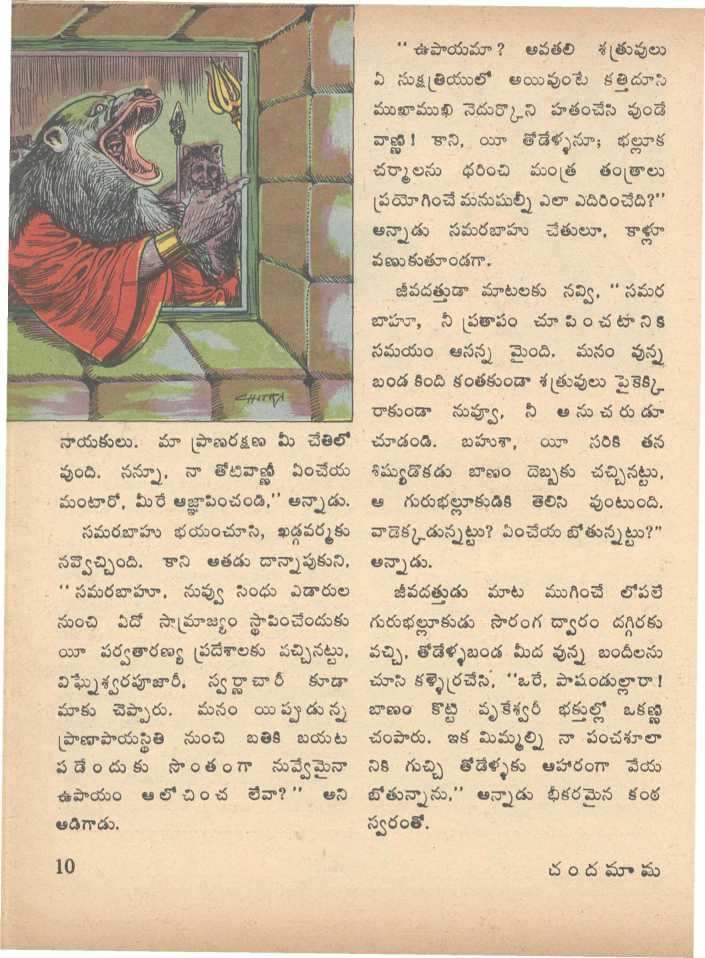 CHITRA
నాయకులు. మా ప్రాణరక్షణ మీ చేతిలో
వుంది. నన్నూ, నా తోటివాణ్ణీ ఏంచేయ
మంటారో, మీరే ఆజ్ఞాపించండి,'' అన్నాడు.
సమరబాహు భయంచూసి, ఖడ్గవర్మకు
నవ్వొచ్చింది. కాని అతడు దాన్నాపుకుని,
"సమరబాహూ, నువ్వు సింధు ఎడారుల
నుంచి ఏదో సామ్రాజ్యం స్థాపించేందుకు
యీ పర్వతారణ్య ప్రదేశాలకు వచ్చినట్టు,
విఘ్నేశ్వరపూజారీ, స్వర్ణాచారీ కూడా
మాకు చెప్పారు. మనం యిప్పుడున్న
ప్రాణాపాయస్థితి నుంచి బతికి బయట
పడేందుకు సొంతంగా నువ్వేమైనా
ఉపాయం ఆలోచించ లేవా?'' అని
అడిగాడు.
"ఉపాయమా? అవతలి శత్రువులు
ఏ సుక్షత్రియులో అయివుంటే కత్తిదూసి
ముఖాముఖి నెదుర్కొని హతంచేసి వుండే
వాణ్ణి! కాని, యీ తోడేళ్ళనూ; భల్లూక
చర్మాలను ధరించి మంత్ర తంత్రాలు
ప్రయోగించే మనుషుల్నీ ఎలా ఎదిరించేది?''
అన్నాడు సమరబాహు చేతులూ, కాళ్లూ
వణుకుతూండగా.
జీవదత్తుడా మాటలకు నవ్వి, "సమర
బాహూ, నీ ప్రతాపం చూపించటానికి
సమయం ఆసన్న మైంది. మనం వున్న
బండ కింది కంతకుండా శత్రువులు పైకెక్కి
రాకుండా నువ్వూ, నీ అనుచరుడూ
చూడండి. బహుశా, యీ సరికి తన
శిష్యుడొకడు బాణం దెబ్బకు చచ్చినట్టు,
ఆ గురుభల్లూకుడికి తెలిసి వుంటుంది.
వాడెక్కడున్నట్టు? ఏంచేయ బోతున్నట్టు?"
అన్నాడు.
జీవదత్తుడు మాట ముగించే లోపలే
గురుభల్లూకుడు సొరంగ ద్వారం దగ్గిరకు
వచ్చి, తోడేళ్ళబండ మీద వున్న బందీలను
చూసి కళ్ళెర్రచేసి, ''ఒరే, పాషండుల్లారా!
బాణం కొట్టి వృకేశ్వరీ భక్తుల్లో ఒకణ్ణి
చంపారు. ఇక మిమ్మల్ని నా పంచశూలా
నికి గుచ్చి తోడేళ్ళకు ఆహారంగా వేయ
బోతున్నాను,'' అన్నాడు భీకరమైన కంఠ
స్వరంతో.
10
చందమామ